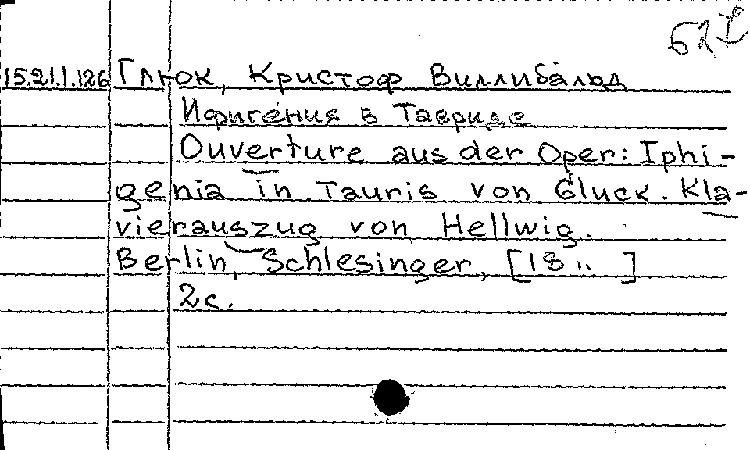 15.21.1.126 Глюк, Кристоф Виллибальд
Ифигения в Тавриде
Ouverture aus der Oper: Iphi-
genia in Tauris von Gluck. Kla-
vierauszug von Hellwig.
Berlin, Schlesinger, [18.. ]
2с.